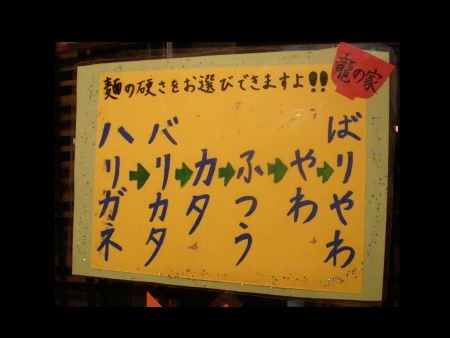 麺の硬さをお選びできますよ!!
龍の家
ハリガネ
バリカタ
カタ
ふつう
やわ
ばりやわ